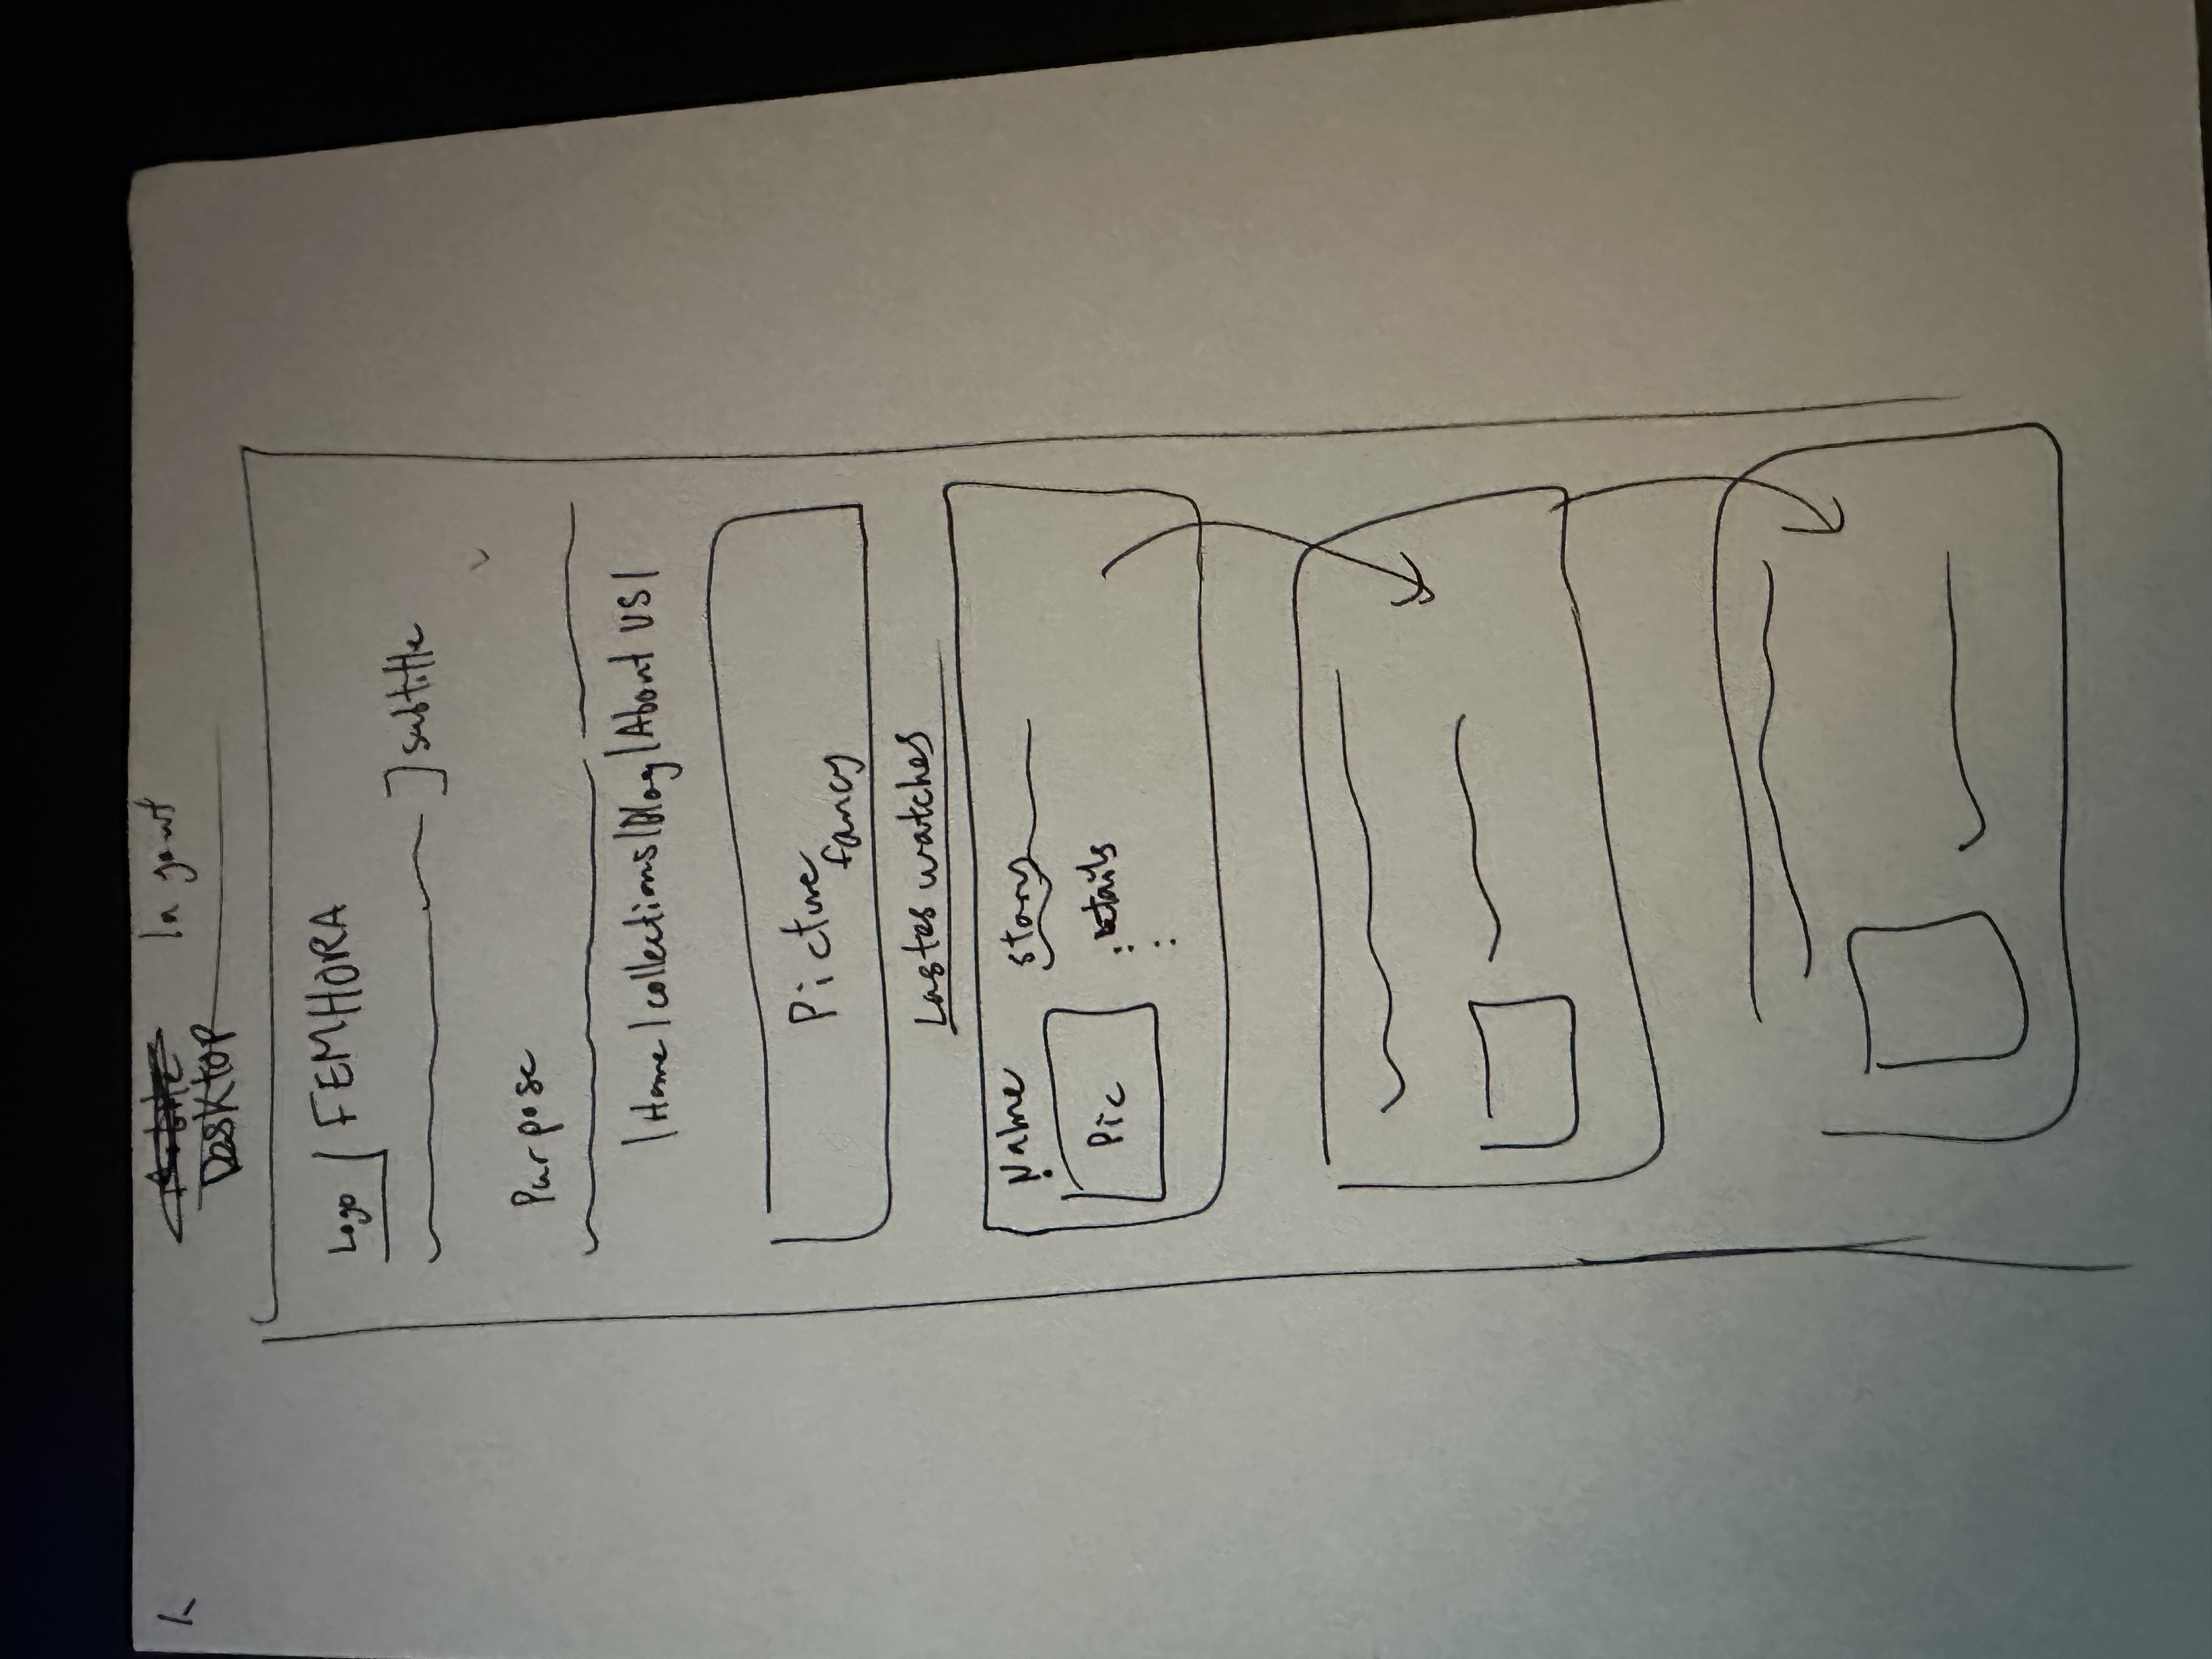 DesKtop
Logo FEMHORA
subtitle
Purpose
|Home|collections|Blog|About US|
Picture
fancy
Lastes watches
Name story
Pic Details